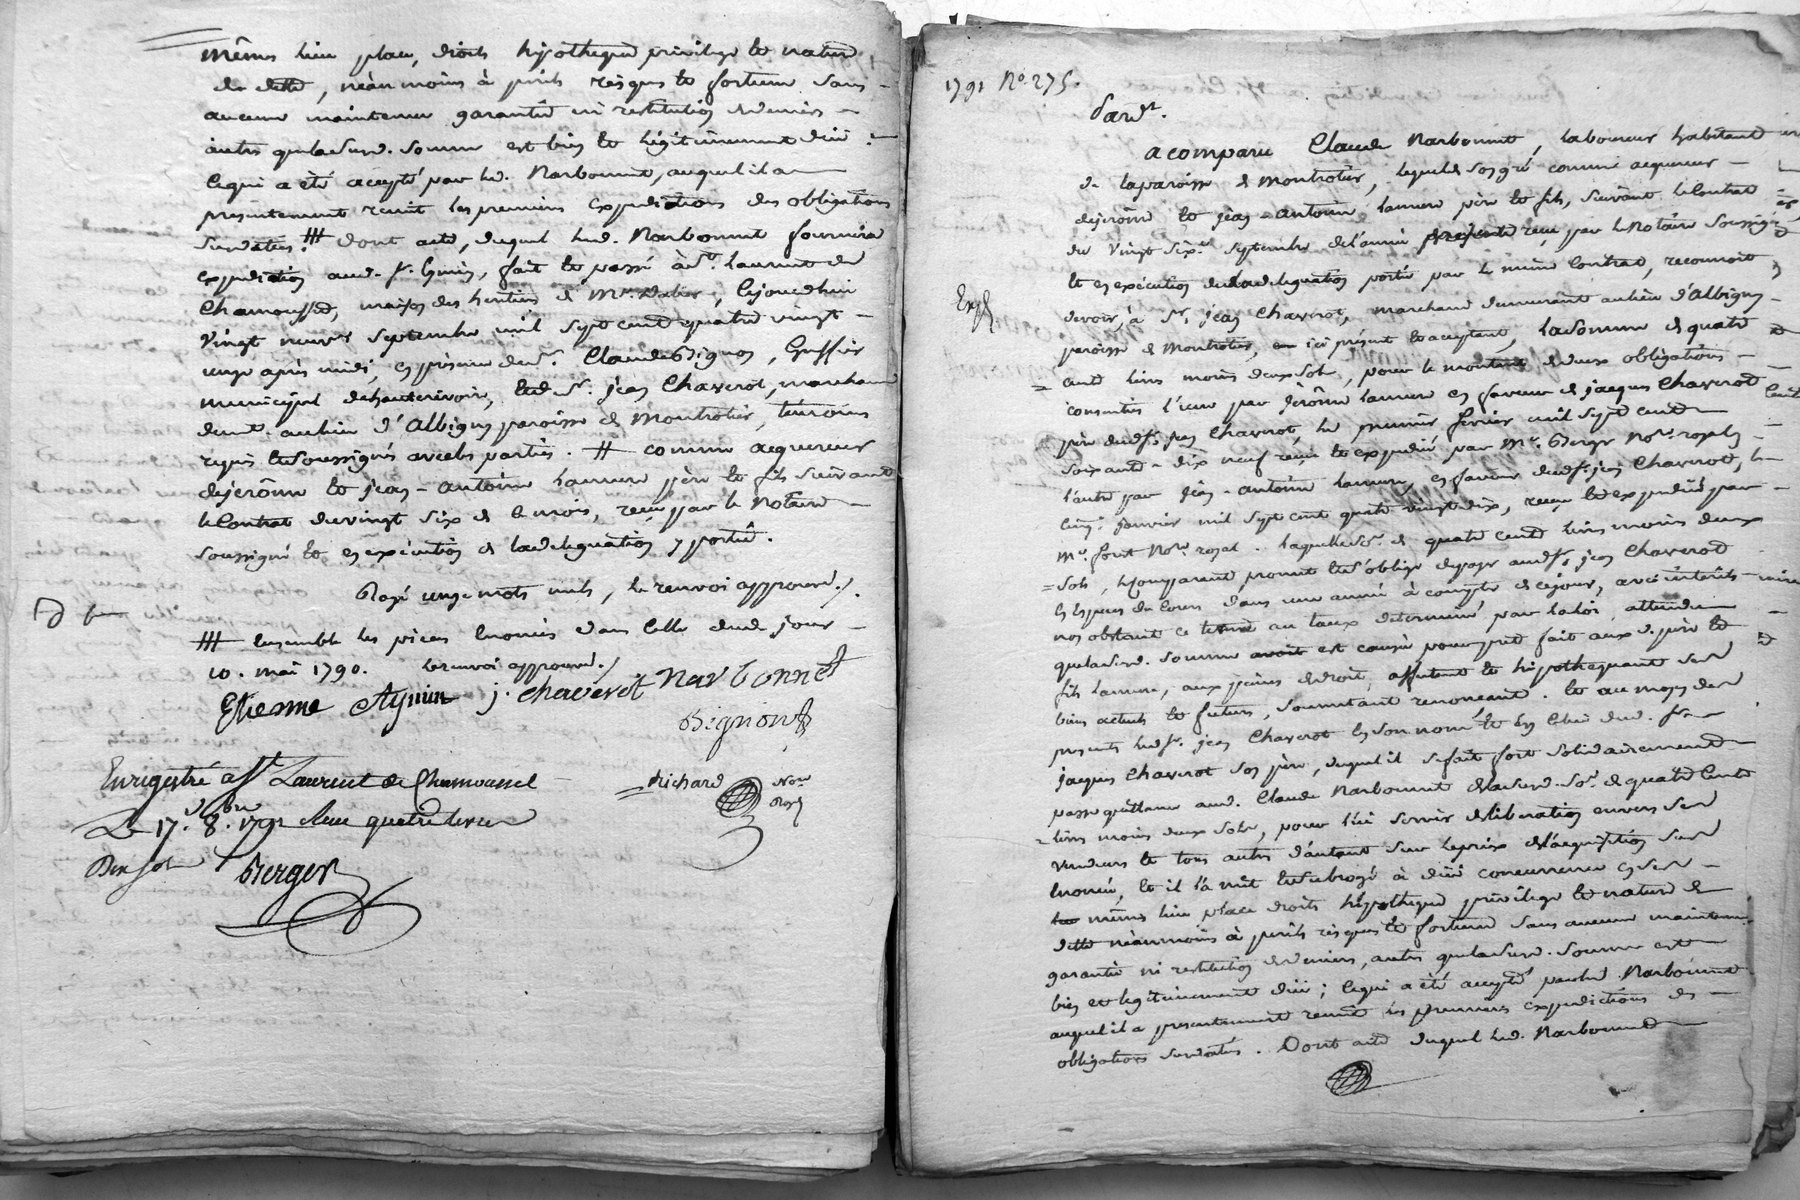 mêmes lieu place, droits hypotheque privilege et nature
de dette, néanmoins à perils risques et fortune sans
aucune maintenue garantie ni restitution de deniers
autre que lad. somme est bien et légitimement düe :
ce qui a été accepté par led. Narbonnet, auquel il a
présentement remit les premieres expeditions des obligations
susdattées. dont acte, duquel led. Narbonnet fournira
expedition aud. sr. Eymin, fait et passé à St. Laurent de
Chamousset, maison des heritiers de Mr. , cejourdhui
vingt neuf septembre mil sept cent quatre vingt
onze après midi, en présence de sr. Claude Bignon, Greffier
municipal de hauterivoire, et de sr. jean Chaverot, marchand
demt. au lieu d'Albigny paroisse de Montrotier, témoins
requis et soussignés avec les parties. # comme acquereur
de jerôme et jean-antoine Lanure père et fils suivant
le Contrat du vingt six de ce mois, reçu par le Notaire
soussigné et en exécution de la délégation y portée.
Rayé onze mots nuls, le renvoi approuvé./.
# ensemble les pieces énoncées dans celle dud. jour
10. mai 1790. le renvoi approuvé./
Etienne Aymin j. chaverot Narbonnet
Bignon
Enregistré a St. Laurent de Chamousset
Richard Nore
Royal
Le 17. 8bre 1791 quatre livres
Dix sols Berger
1791 No. 275.
Pardt.
a comparu Claude Narbonnet, laboureur habitant en
de la paroisse de Montrotier, lequel de son gré comme acquereur
de jerôme et jean-antoine Lanure père et fils, suivant le Contrat
du vingt six septembre de l'année présente reçu par le Notaire soussigné
et en exécution de la délégation portée par le même Contrat, reconnoit
Expé
devoir, à Sr. jean Chaverot, marchand demeurant au lieu d'Albigny
paroisse de Montrotier, ici présent et acceptant, la somme de quatre
cent livres moins deux sols, pour le montant de deux obligations
consenties l'une par jerôme Lanure en faveur de jacques Chaverot
père dud. sr. jean Chaverot, le premier février mil sept cent
soixante-dix neuf reçue et expediée par Me. Berger Nore. royal,
l'autre par jean-antoine Lanure, en faveur dud. sr. jean Chaverot, le
cinq janvier mil sept cent quatre vingt dix, reçue et expediée par
Me. foret Nore. royal. laquelle so. de quatre cent livres moins deux
sols, le comparant promet et s'oblige de payer aud. sr. jean Chaverot
en espèces de cours dans une année à compter de cejour, avec intérêts
nonobstant ce terme au taux déterminé par la loi, attendu
que lad. somme est causée pour prêt fait auxd. père et
fils Lanure, aux peines de droit, affectant et hypothequant ses
biens actuels et futurs, soumettant renonceant. et au moyen des
présents led. sr. jean Chaverot en son nom et en celui dud. sr.
jacques Chaverot son père, duquel il se fait fort solidairement
passe quittance aud. Claude Narbonnet de lad. so. de quatre cents
livres moins deux sols, pour lui servir de liberation envers ses
vendeurs et tous autres d'autant sur le prix de l'acquisition sus
énoncée, et il l'a mit et subrogé à düe concurrence en ses
mêmes lieu place droits hypotheque privilege et nature de
dette néanmoins à perils risques et fortune sans aucune maintenue
garantie ni restitution de deniers, autre que lad. somme est
bien et legitimement düe ; ce qui a été accepté par led. Narbonnet
auquel il a présentement remit les premieres expeditions des
obligations susdattées. Dont acte duquel led. Narbonnet